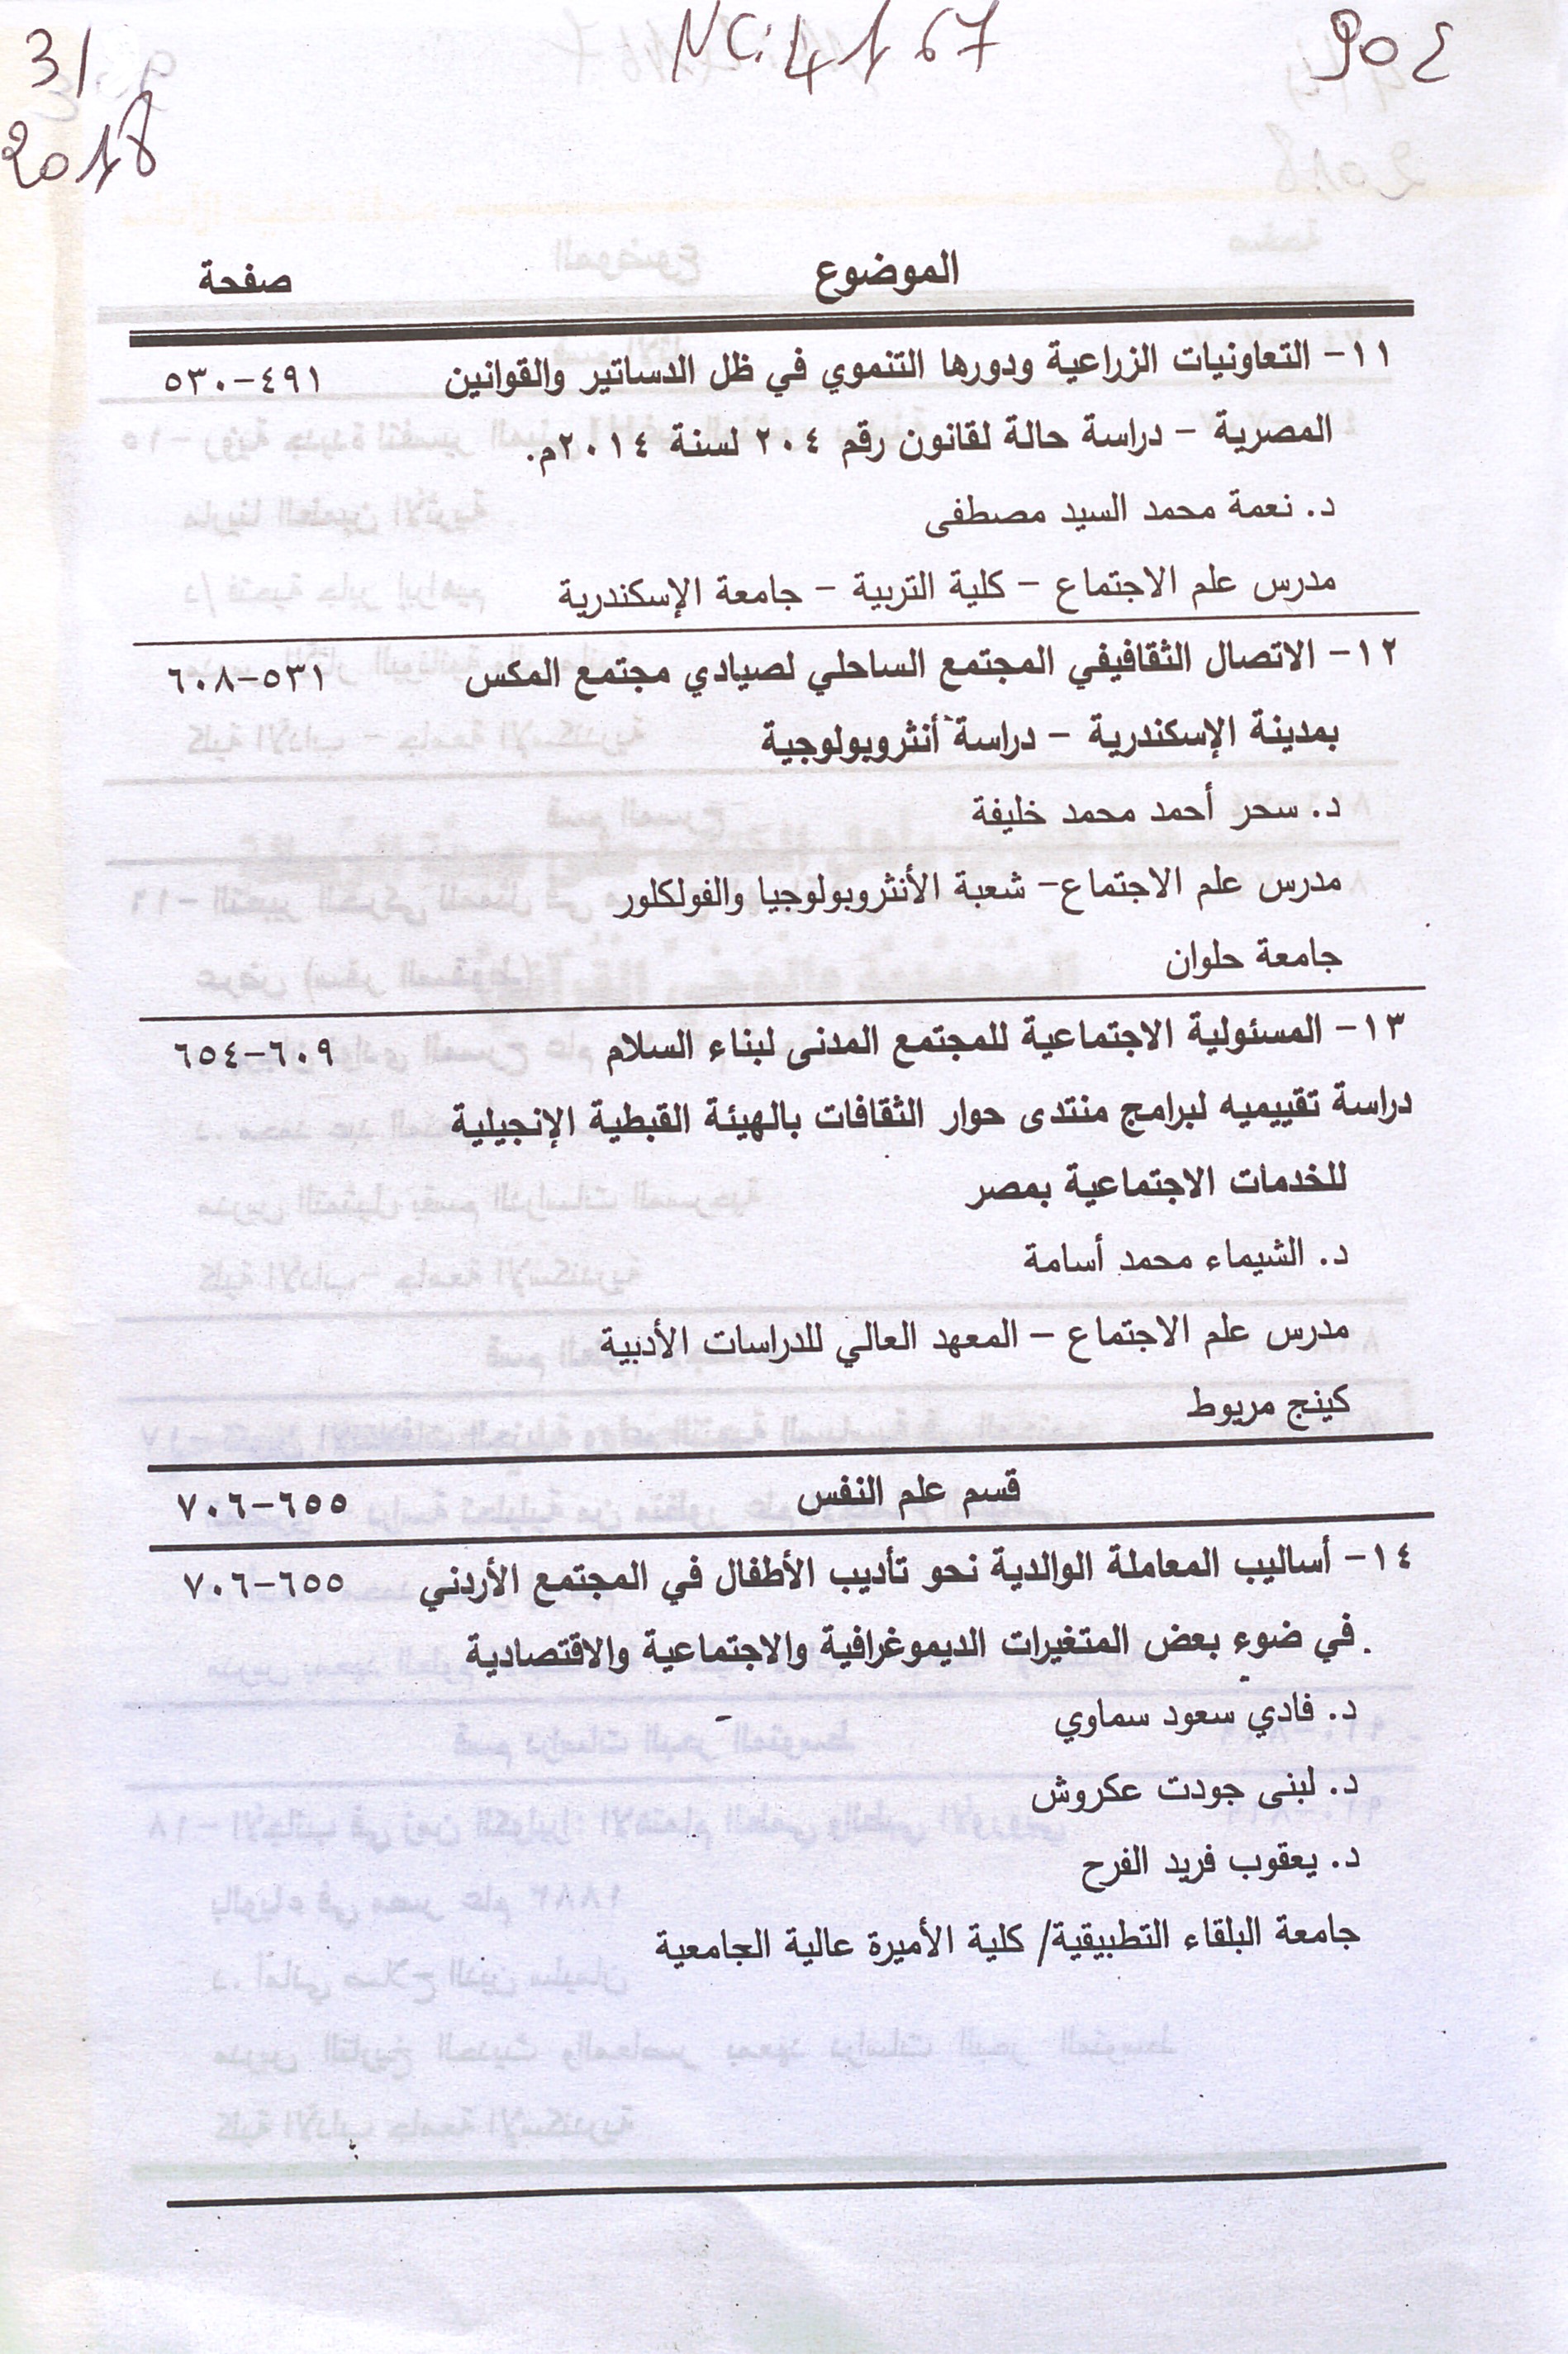 904
NC: 4167
3/
2018
الموضوع
صفحة
١١- التعاونيات الزراعية ودورها التنموي في ظل الدساتير والقوانين ٤٩١-٥٣٠
المصرية - دراسة حالة لقانون رقم ٢٠٤ لسنة ٢٠١٤م.
د. نعمة محمد السيد مصطفى
مدرس علم الاجتماع - كلية التربية - جامعة الإسكندرية
١٢- الاتصال الثقافيفي المجتمع الساحلي لصيادي مجتمع المكس ٥٣١-٦٠٨
بمدينة الإسكندرية - دراسة أنثروبولوجية
د. سحر أحمد محمد خليفة
مدرس علم الاجتماع- شعبة الأنثروبولوجيا والفولكلور
جامعة حلوان
١٣- المسئولية الاجتماعية للمجتمع المدنى لبناء السلام ٦٠٩-٦٥٤
دراسة تقييميه لبرامج منتدى حوار الثقافات بالهيئة القبطية الإنجيلية
للخدمات الاجتماعية بمصر
د. الشيماء محمد أسامة
مدرس علم الاجتماع - المعهد العالي للدراسات الأدبية
كينج مريوط
قسم علم النفس ٦٥٥-٧٠٦
١٤- أساليب المعاملة الوالدية نحو تأديب الأطفال في المجتمع الأردني ٦٥٥-٧٠٦
في ضوء بعض المتغيرات الديموغرافية والاجتماعية والاقتصادية
د. فادي سعود سماوي
د. لبنى جودت عكروش
د. يعقوب فريد الفرح
جامعة البلقاء التطبيقية/ كلية الأميرة عالية الجامعية